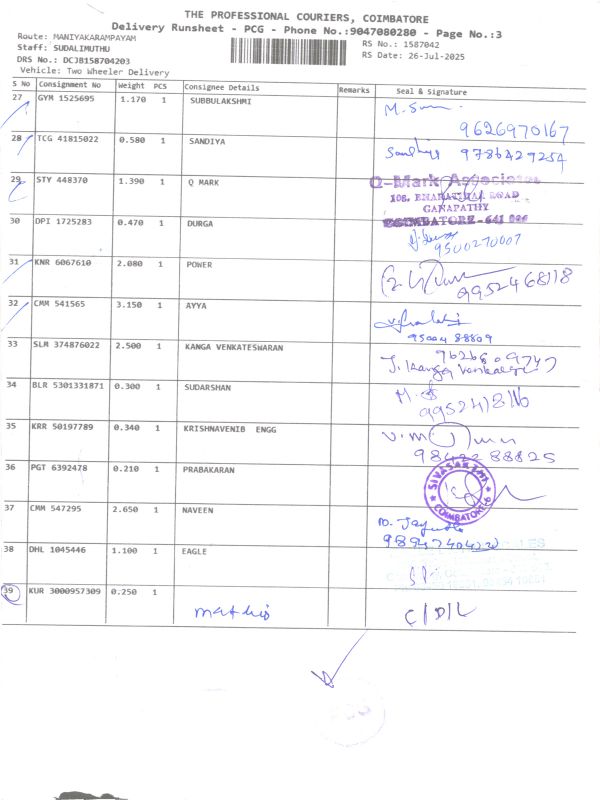 THE PROFESSIONAL COURIERS, COIMBATORE
Delivery Runsheet - PCG - Phone No.:9047080280 - Page No.:3
Route: MANIYAKARAMPAYAM
RS No.: 1587042
Staff: SUDALIMUTHU
RS Date: 26-Jul-2025
DRS No.: DCJB158704203
Vehicle: Two Wheeler Delivery
S No Consignment No Weight PCS Consignee Details Remarks Seal & Signature
27 GYM 1525695 1.170 1 SUBBULAKSHMI
9626970167
28 TCG 41815022 0.580 1 SANDIYA
9786429254
29 STY 448370 1.390 1 Q MARK
Q-Mark Associates
108, BHARATHIAR ROAD
GANAPATHY
COIMBATORE - 641 006
30 DPI 1725283 0.470 1 DURGA
9500270007
31 KNR 6067610 2.080 1 POWER
9952468118
32 CMM 541565 3.150 1 AYYA
95004 88809
33 SLM 374876022 2.500 1 KANGA VENKATESWARAN
34 BLR 5301331871 0.300 1 SUDARSHAN
35 KRR 50197789 0.340 1 KRISHNAVENIB ENGG
9842288825
36 PGT 6392478 0.210 1 PRABAKARAN
COIMBATORE-6
37 CMM 547295 2.650 1 NAVEEN
38 DHL 1045446 1.100 1 EAGLE
39 KUR 3000957309 0.250 1
C/D/L